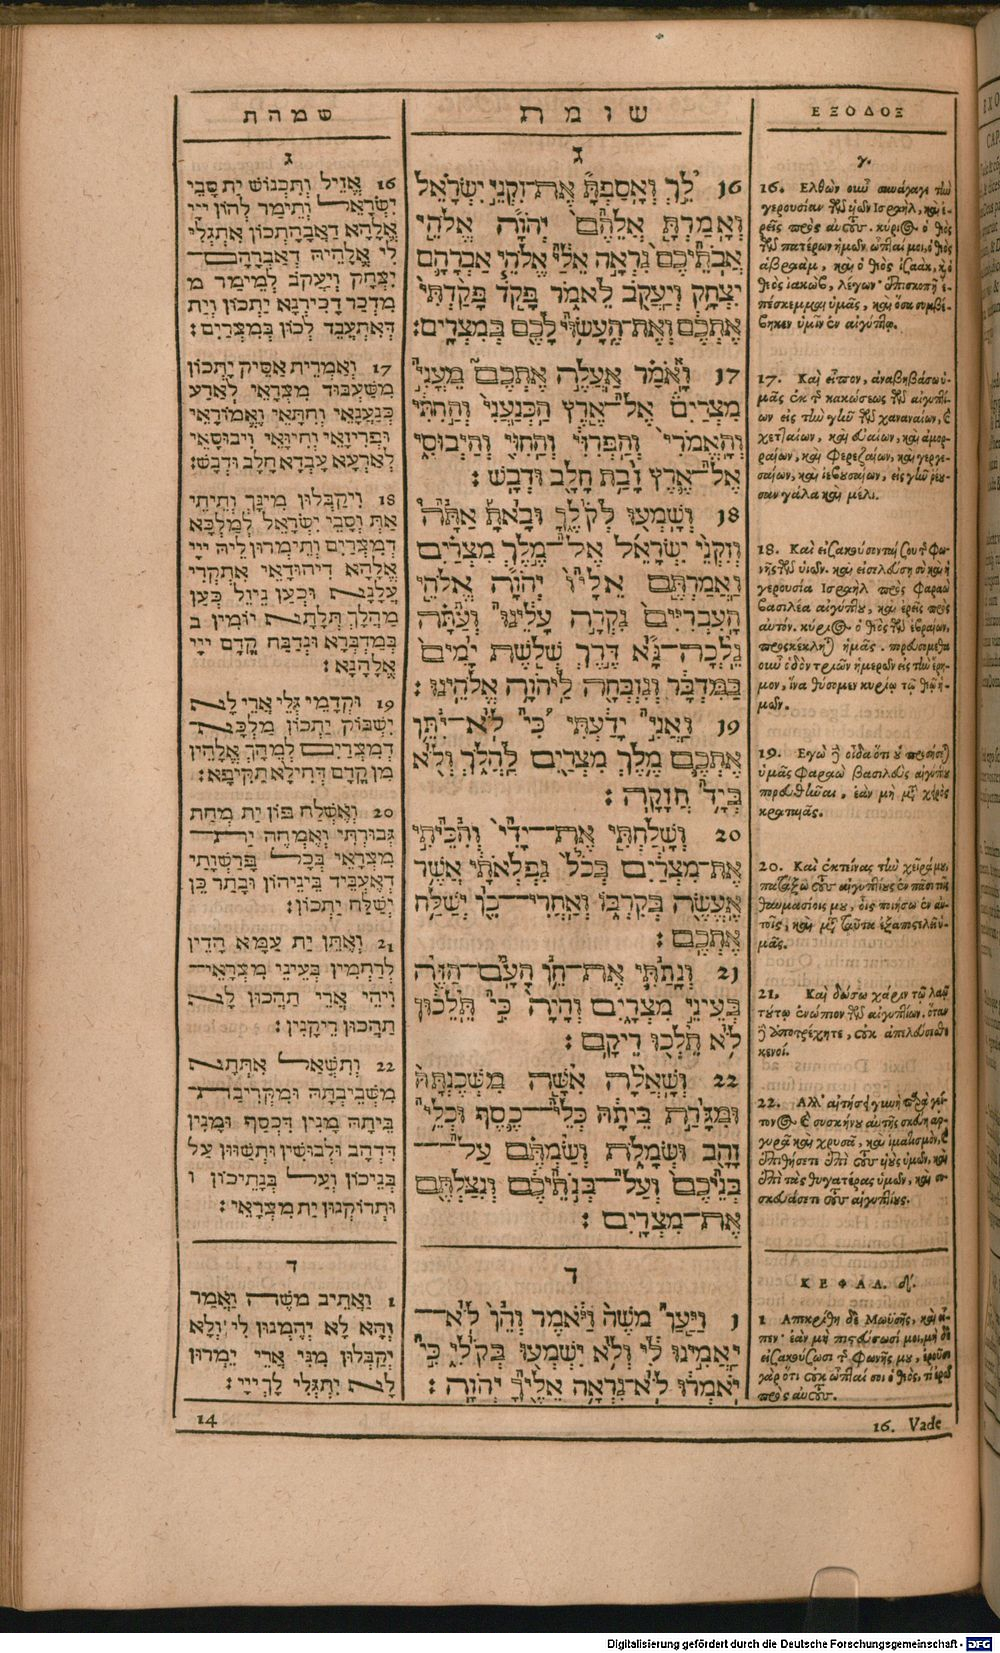 שמהת
ג
16 אֱזֵיל וְתִכְנוֹשׁ יַת סָבֵי
יִשְׂרָאֵל וְתֵימַר לְהוֹן יְיָי
אֱלָהָא דַאֲבָהָתְכוֹן אִתְגְּלִי
לִי אֱלָהֵיהּ דְאַבְרָהָם
יִצְחָק וְיַעֲקֹב לְמֵימַר מ
מִדְכַר דְּכִירְנָא יַתְכוֹן וְיַת
דְּאִתְעֲבֶד לְכוֹן בְּמִצְרָיִם:
17 וַאֲמְרִית אַסֵּיק יָתְכוֹן
מִשִּׁעְבּוּד מִצְרָאֵי לַאֲרַע
כְּנַעֲנָאֵי וְחִתָּאֵי וֶאֱמוֹרָאֵי
וּפְרִיזָאֵי וְחִיוָּאֵי וִיבוּסָאֵי
לְאַרְעָא עָבְדָא חֲלָב וּדְבָשׁ:
18 וִיקַבְּלוּן מִינָּךְ וְתֵיתֵי
אַתְּ וְסָבֵי יִשְׂרָאֵל לְמַלְכָּא
דְמִצְרַיִם וְתֵימְרוּן לֵיהּ יְיָי
אֱלָהָא דִיהוּדָאֵי אִתְקְרִי
עֲלָנָא וּכְעַן נֵיזֵל כְּעַן
מַהֲלַךְ תְּלָתָא יוֹמִין ב
בְּמַדְבְּרָא וּנְדַבַּח קֳדָם יְיָי
אֱלָהָנָא:
19 וּקְדָמַי גְּלֵי אֲרֵי לָא
יִשְׁבּוֹק יַתְכוֹן מַלְכָּא
דְמִצְרַיִם לְמֵהַךְ אֱלָהֵין
מִן קֳדָם דְּחֵילָא תַקִּיפָא:
20 וְאֶשְׁלַח פּוֹן יַת מַחַת
גְּבוּרְתִּי וְאֶמְחֵה יַת
מִצְרָאֵי בְּכָל פָּרְשְׁוָתַי
דְאַעֲבֵּיד בֵּינֵיהוֹן וּבָתַר כֵּן
יְשַׁלַּח יַתְכוֹן:
21 וְאֶתֵּן יַת עַמָּא הָדֵין
לְרַחֲמִין בְּעֵינֵי מִצְרָאֵי
וִיהֵי אֲרֵי תְהָכוּן לָא
תְהָכוּן רֵיקָנִין:
22 וְתִשְׁאַל אִתְּתָא
מִשֵּׁבִיבְתָּהּ וּמִקְּרִיבַת
בֵּיתָהּ מָנִין דִּכְסַף וּמָנִין
דִּדְהַב וּלְבוּשִׁין וּתְשַׁוּוּן עַל
בְּנֵיכוֹן וְעַל בְּנָתֵיכוֹן ו
וּתְרוֹקְנוּן יַת מִצְרָאֵי:
ד
1 וַאֲתֵיב מֹשֶׁה וַאֲמַר
וְהָא לָא יְהֵמְנוּן לִי וְלָא
יְקַבְּלוּן מִנִּי אֲרֵי יֵמְרוּן
לָא יִתְגְּלִי לָךְ יְיָי:
שומת
ג
16 לֵךְ וְאָסַפְתָּ אֶת־זִקְנֵי יִשְׂרָאֵל
וְאָמַרְתָּ אֲלֵהֶם יְהוָֹה אֱלֹהֵי
אֲבֹתֵיכֶם נִרְאָה אֵלַי אֱלֹהֵי אַבְרָהָם
יִצְחָק וְיַעֲקֹב לֵאמֹר פָּקֹד פָּקַדְתִּי
אֶתְכֶם וְאֶת־הֶעָשׂוּי לָכֶם בְּמִצְרָיִם:
17 וָאֹמַר אַעֲלֶה אֶתְכֶם מֵעֳנִי
מִצְרַיִם אֶל־אֶרֶץ הַכְּנַעֲנִי וְהַחִתִּי
וְהָאֱמֹרִי וְהַפְּרִזִּי וְהַחִוִּי וְהַיְבוּסִי
אֶל־אֶרֶץ זָבַת חָלָב וּדְבָשׁ:
18 וְשָׁמְעוּ לְקֹלֶךָ וּבָאתָ אַתָּה
וְזִקְנֵי יִשְׂרָאֵל אֶל־מֶלֶךְ מִצְרַיִם
וַאֲמַרְתֶּם אֵלָיו יְהוָֹה אֱלֹהֵי
הָעִבְרִיִּים נִקְרָה עָלֵינוּ וְעַתָּה
נֵלְכָה־נָּא דֶּרֶךְ שְׁלֹשֶׁת יָמִים
בַּמִּדְבָּר וְנִזְבְּחָה לַיהוָֹה אֱלֹהֵינוּ:
19 וַאֲנִי יָדַעְתִּי כִּי לֹא־יִתֵּן
אֶתְכֶם מֶלֶךְ מִצְרַיִם לַהֲלֹךְ וְלֹא
בְּיָד חֲזָקָה:
20 וְשָׁלַחְתִּי אֶת־יָדִי וְהִכֵּיתִי
אֶת־מִצְרַיִם בְּכֹל נִפְלְאֹתַי אֲשֶׁר
אֶעֱשֶׂה בְּקִרְבּוֹ וְאַחֲרֵי־כֵן יְשַׁלַּח
אֶתְכֶם:
21 וְנָתַתִּי אֶת־חֵן הָעָם־הַזֶּה
בְּעֵינֵי מִצְרָיִם וְהָיָה כִּי תֵלֵכוּן
לֹא תֵלְכוּ רֵיקָם:
22 וְשָׁאֲלָה אִשָּׁה מִשְּׁכֶנְתָּהּ
וּמִגָּרַת בֵּיתָהּ כְּלֵי־כֶסֶף וּכְלֵי
זָהָב וּשְׂמָלֹת וְשַׂמְתֶּם עַל־
בְּנֵיכֶם וְעַל־בְּנֹתֵיכֶם וְנִצַּלְתֶּם
אֶת־מִצְרָיִם:
ד
1 וַיַּעַן מֹשֶׁה וַיֹּאמֶר וְהֵן לֹא־
יַאֲמִינוּ לִי וְלֹא יִשְׁמְעוּ בְּקֹלִי כִּי
יֹאמְרוּ לֹא־נִרְאָה אֵלֶיךָ יְהוָֹה:
ΕΞΟΔΟΞ
γ.
16. Ελθὼν οὖν συνάγαγε τὴν
γερουσίαν τῶν ὑιῶν Ισραὴλ, καὶ ἐ-
ρεῖς πρὸς αὐτοὺς. κύριος ὁ θεὸς
τῶν πατέρων ἡμῶν ὦπταί μοι, ὁ θεὸς
ἀβραὰμ, καὶ ὁ θεὸς ἰσαὰκ, κ ὁ
θεὸς ἰακὼβ, λέγων· ἐπισκοπῇ ἐ-
πέσκεμμαι ὑμᾶς, καὶ ὅσα συμβέ-
βηκεν ὑμῖν ἐν αἰγύπτῳ.
17. Καὶ εἶπον, ἀναβηβάσω ὑ-
μᾶς ἐκ τ κακώσεως τῶν αἰγυπτί-
ων εἰς τὴν γῆν τῶν χαναναίων, κ
χετταίων, καὶ εὐαίων, καὶ ἀμορ-
ραίων, καὶ Φερεζαίων, καὶ γεργε-
σαίων, καὶ ἰεβουσαίων, εἰς γῆν ῥέου-
σαν γάλα καὶ μέλι.
18. Καὶ εἰσακούσονταί σου τ φω-
νῆς τῶν υἱῶν. καὶ εἰσελεύσῃ σὺ καὶ ἡ
γερουσία Ισραὴλ πρὸς Φαραὼ
βασιλέα αἰγύπτου, καὶ ἐρεῖς πρὸς
αὐτόν. κύριος ὁ θεὸς τῶν ἑβραίων,
προσκέκληται ἡμᾶς. πορευσόμεθα
οὖν ὁδὸν τριῶν ἡμερῶν εἰς τὴν ἔρη-
μον, ἵνα θύσομεν κυρίῳ τῷ θεῷ ἡ-
μῶν.
19. Εγὼ δὲ οἶδα ὅτι οὐ προήσεται
ὑμᾶς Φαραὼ βασιλεὺς αἰγύπτου
πορευθῆναι, ἐὰν μὴ μετὰ χειρὸς
κραταιᾶς.
20. Καὶ ἐκτείνας τὴν χεῖρά μου,
πατάξω τοὺς αἰγυπτίους ἐν πᾶσι τοῖς
θαυμασίοις μου, οἷς ποιήσω ἐν αὐ-
τοῖς, καὶ μετὰ ταῦτα ἐξαποστελῶ ὑ-
μᾶς.
21. Καὶ δώσω χάριν τῷ λαῷ
τούτῳ ἐνώπιον τῶν αἰγυπτίων. ὅταν
δὲ ἀποτρέχητε, οὐκ ἀπελεύσεσθε
κενοί.
22. Αλλ᾽ αἰτήσει γυνὴ παρὰ γεί-
τονος κ συσκήνου αὐτῆς σκεύη ἀρ-
γυρᾶ καὶ χρυσᾶ, καὶ ἱματισμὸν, κ
ἐπιθήσετε ἐπὶ τοὺς υἱοὺς ὑμῶν, καὶ
ἐπὶ τὰς θυγατέρας ὑμῶν, καὶ συ-
σκευάσετε τοὺς αἰγυπτίους.
ΚΕΦΑΛ. δʹ.
1 Απεκρίθη δὲ Μωϋσῆς, καὶ εἶ-
πεν· ἐὰν μὴ πιστεύσωσί μοι, μὴ δὲ
εἰσακούσωσι τ φωνῆς μου, ἐροῦσι
γὰρ ὅτι οὐκ ὦπταί σοι ὁ θεὸς, τί ἐρῶ
πρὸς αὐτοὺς.
14
16. Vade
Digitalisierung gefördert durch die Deutsche Forschungsgemeinschaft - DFG